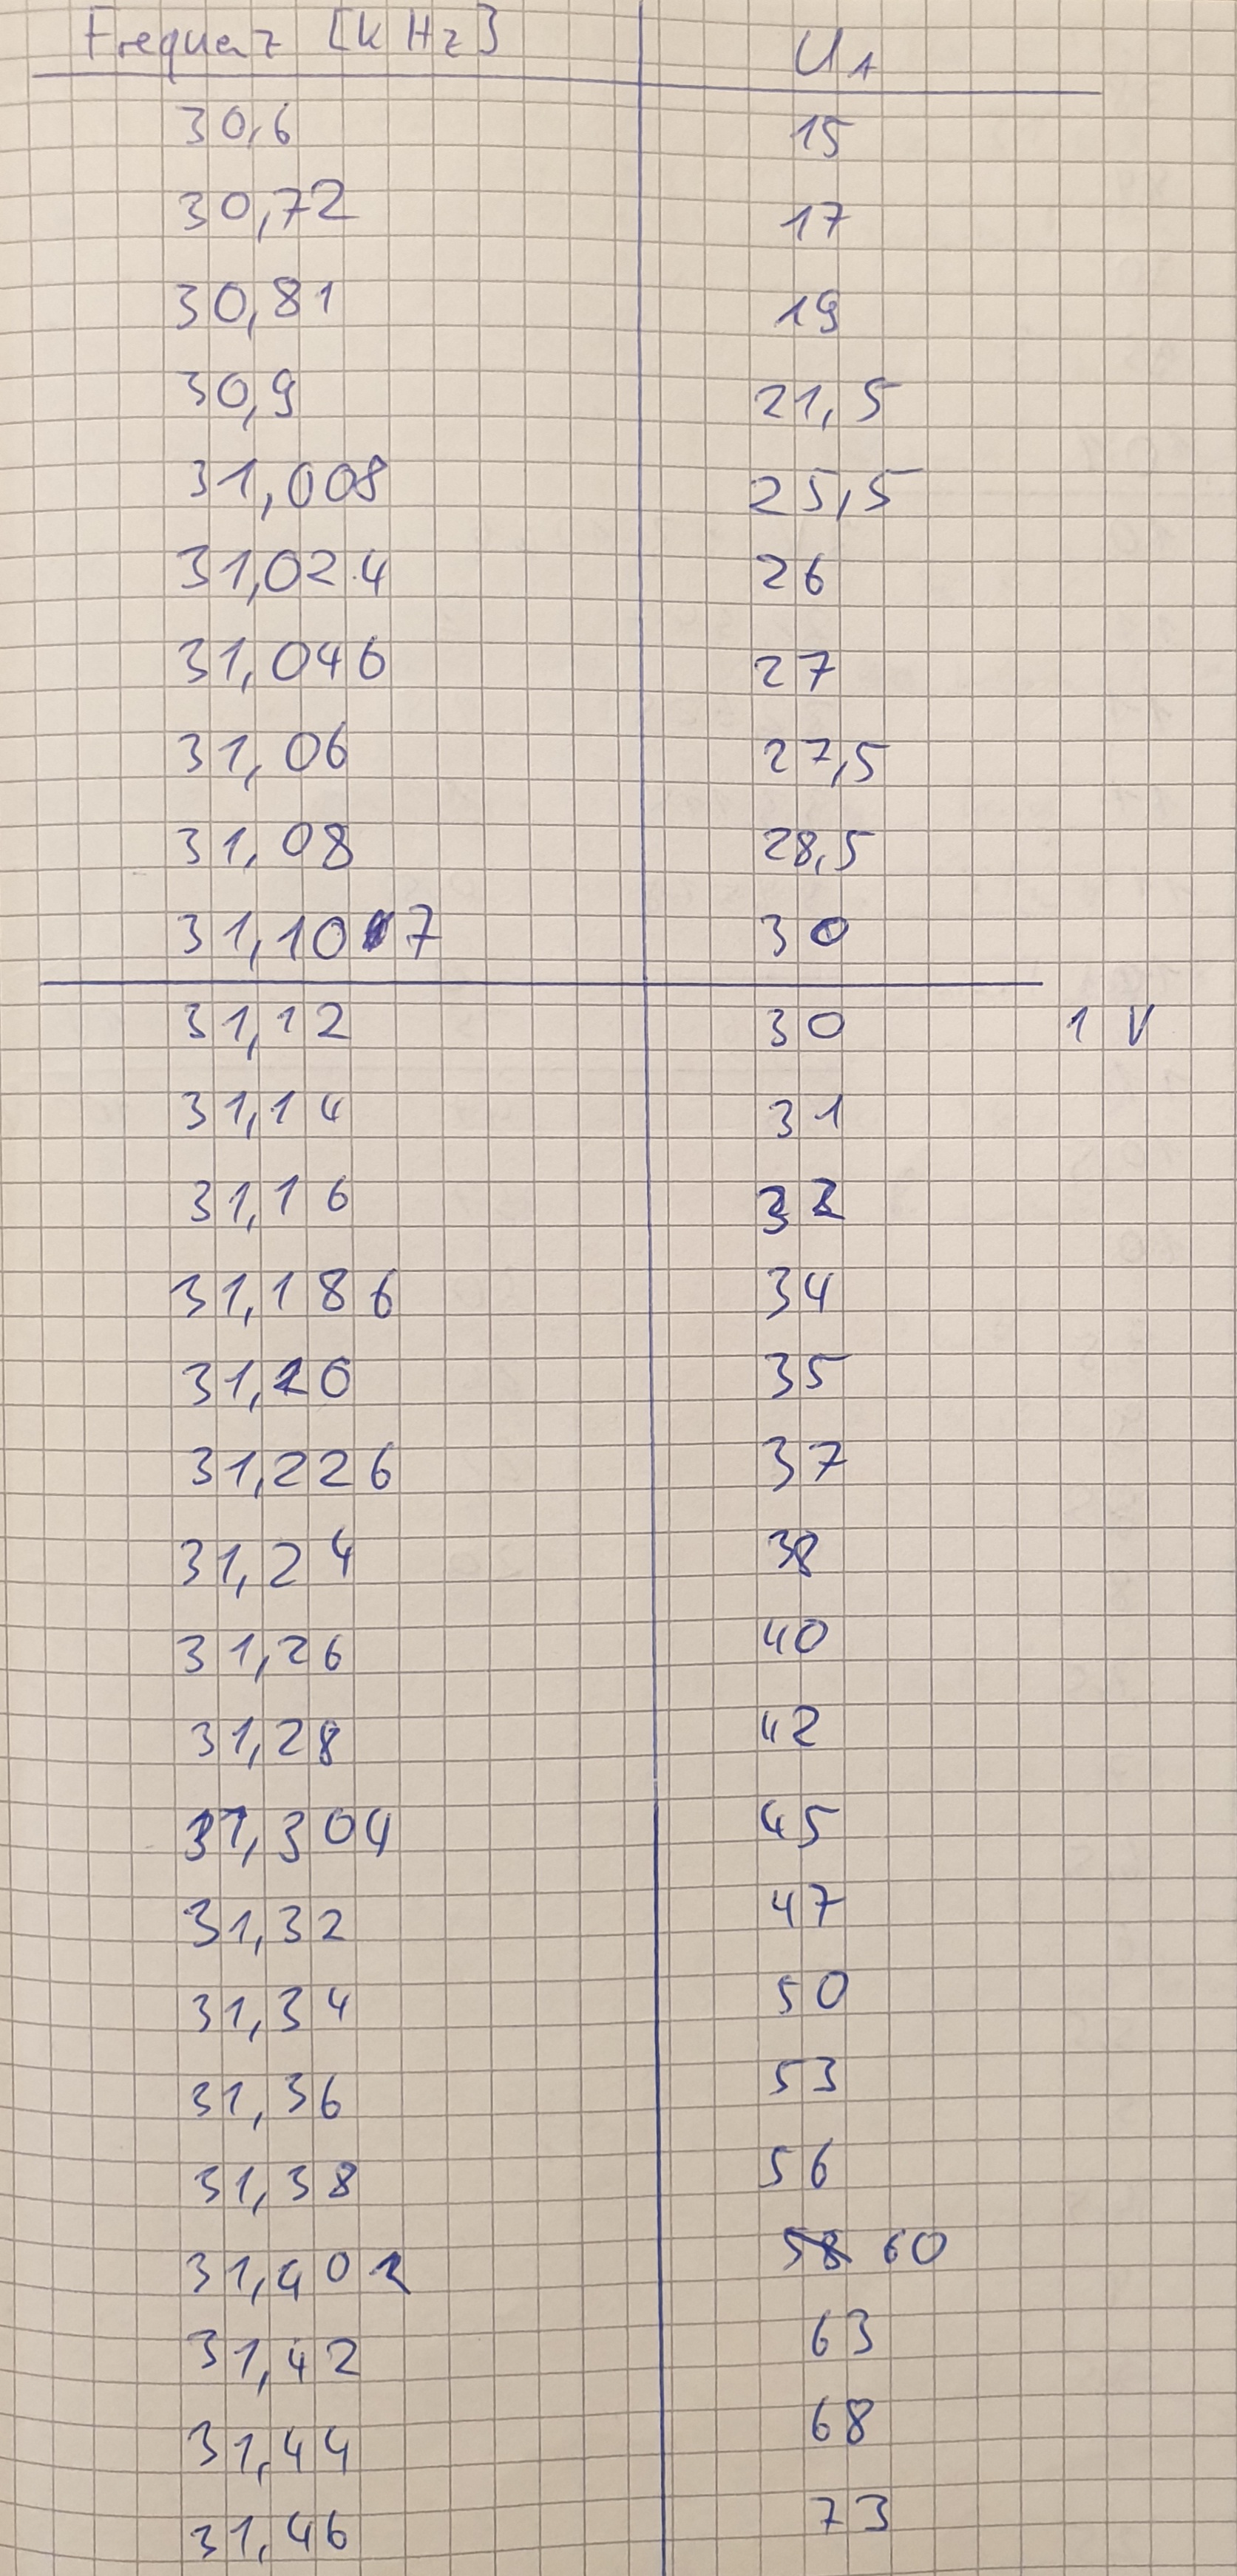 Frequenz [kHz] U1
30,6 15
30,72 17
30,81 19
30,9 21,5
31,008 25,5
31,024 26
31,046 27
31,06 27,5
31,08 28,5
31,107 30
31,12 30 1 V
31,14 31
31,16 32
31,186 34
31,20 35
31,226 37
31,24 38
31,26 40
31,28 42
31,304 45
31,32 47
31,34 50
31,36 53
31,38 56
31,402 58 60
31,42 63
31,44 68
31,46 73